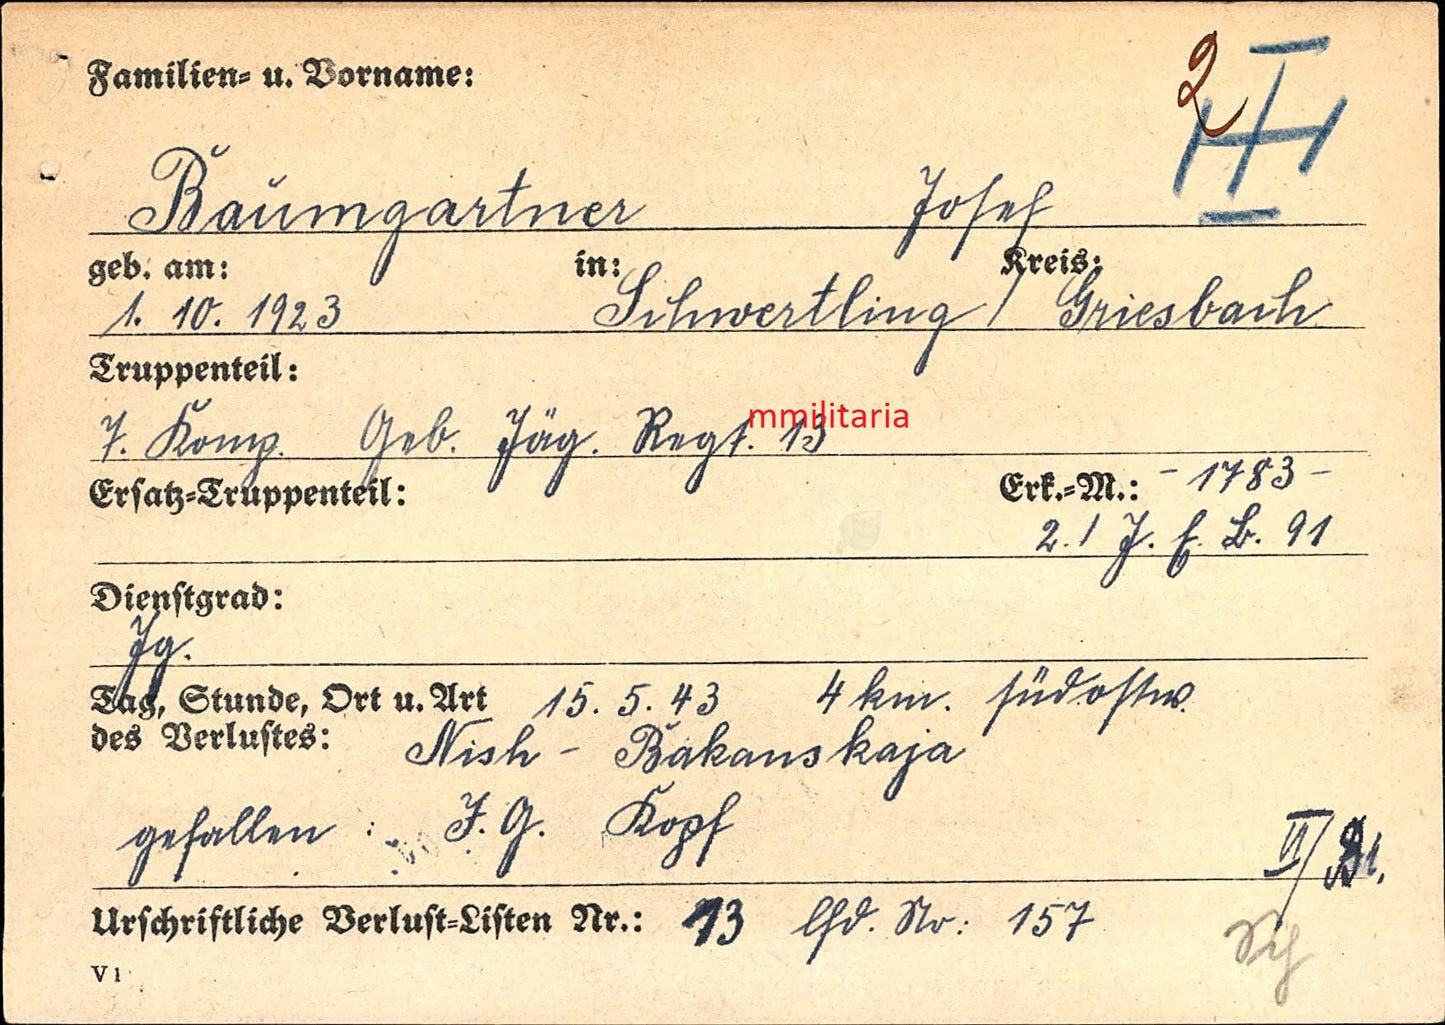 Familien- u. Vorname:
2
III
Baumgartner Josef
geb. am: in: Kreis:
1. 10. 1923 Schwertling / Griesbach
Truppenteil:
7. Komp. Geb. Jäg. Regt. 13
mmilitaria
Ersatz-Truppenteil: Erk.-M.: - 1783 -
2. / J. E. B. 91
Dienstgrad:
Jg.
Tag, Stunde, Ort u. Art 15. 5. 43 4 km. südostw.
des Verlustes: Nish - Bakanskaja
gefallen : J. G. Kopf
VI/
Urschriftliche Verlust-Listen Nr.: 13 lfd. Nr: 157
V 1